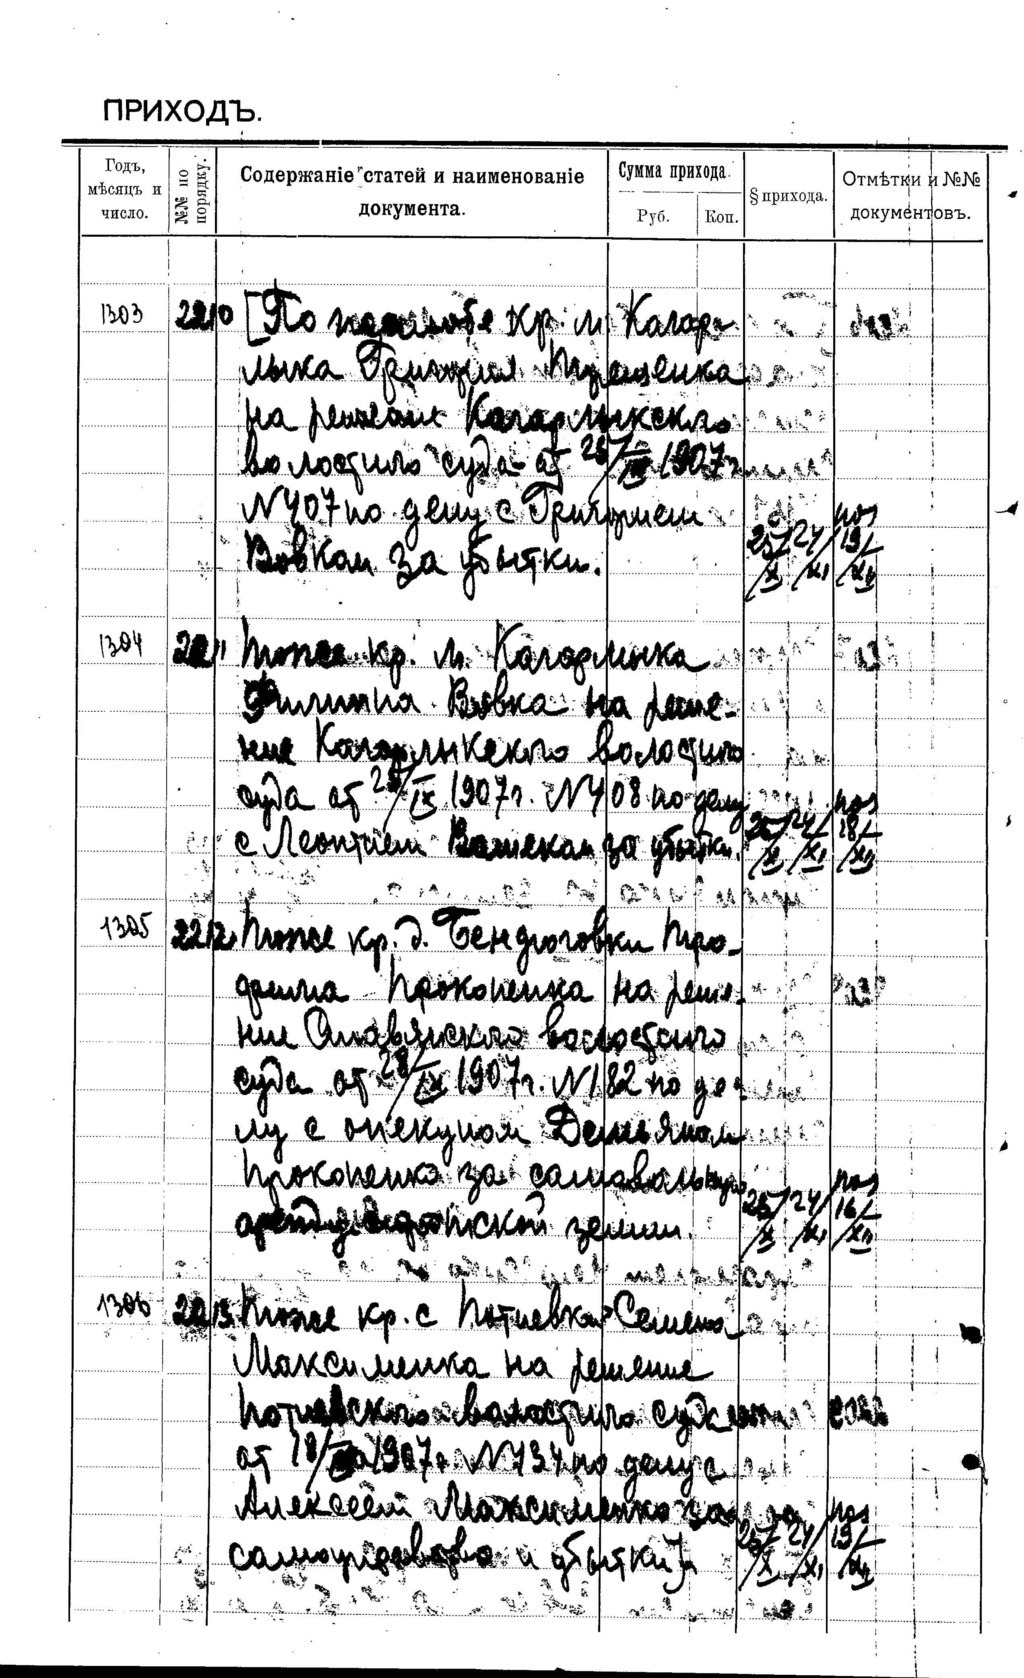 ПРИХОДЪ.
Годъ, мѣсяцъ и число.
№№ по порядку.
Содержаніе статей и наименованіе документа.
Сумма прихода.
Руб.
Коп.
§ прихода.
Отмѣтки и №№ документовъ.
1303 2210 [По жалобе кр. м. Кагар-
лыка Григория Терещенка
на решение Кагарлыкского
волостного суда от 25/IX 1907 г.
N 407 по делу с Григорием
Вовком за убытки. 25/X 24/XI 19/XII
1304 2211 Тоже кр. м. Кагарлыка
Филиппа Вовка на реше-
ние Кагарлыкского волостного
суда от 25/IX 1907 г. N 408 по делу
с Леонтием за убытки. 25/X 24/XI 18/XII
1305 2212 Тоже кр. д. Бендюговки Тро-
фима Прокопенка на реше-
ние волостного
суда от 28/IX 1907 г. N 182 по де-
лу с опекуном Демьяном
Прокопенко за самовольную
аренду сиротской земли. 25/X 24/XI 16/XII
1306 2213 Тоже кр. с. Потиевки Семена
Максименка на решение
Потиевского волостного суда
от 18/IX 1907 г. N 434 по делу с
Алексеем Максименко за
самоуправство и убытки]. 25/X 24/XI 19/XII